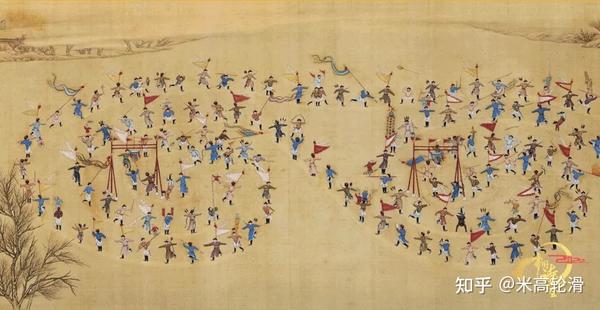 知乎 @米高轮滑